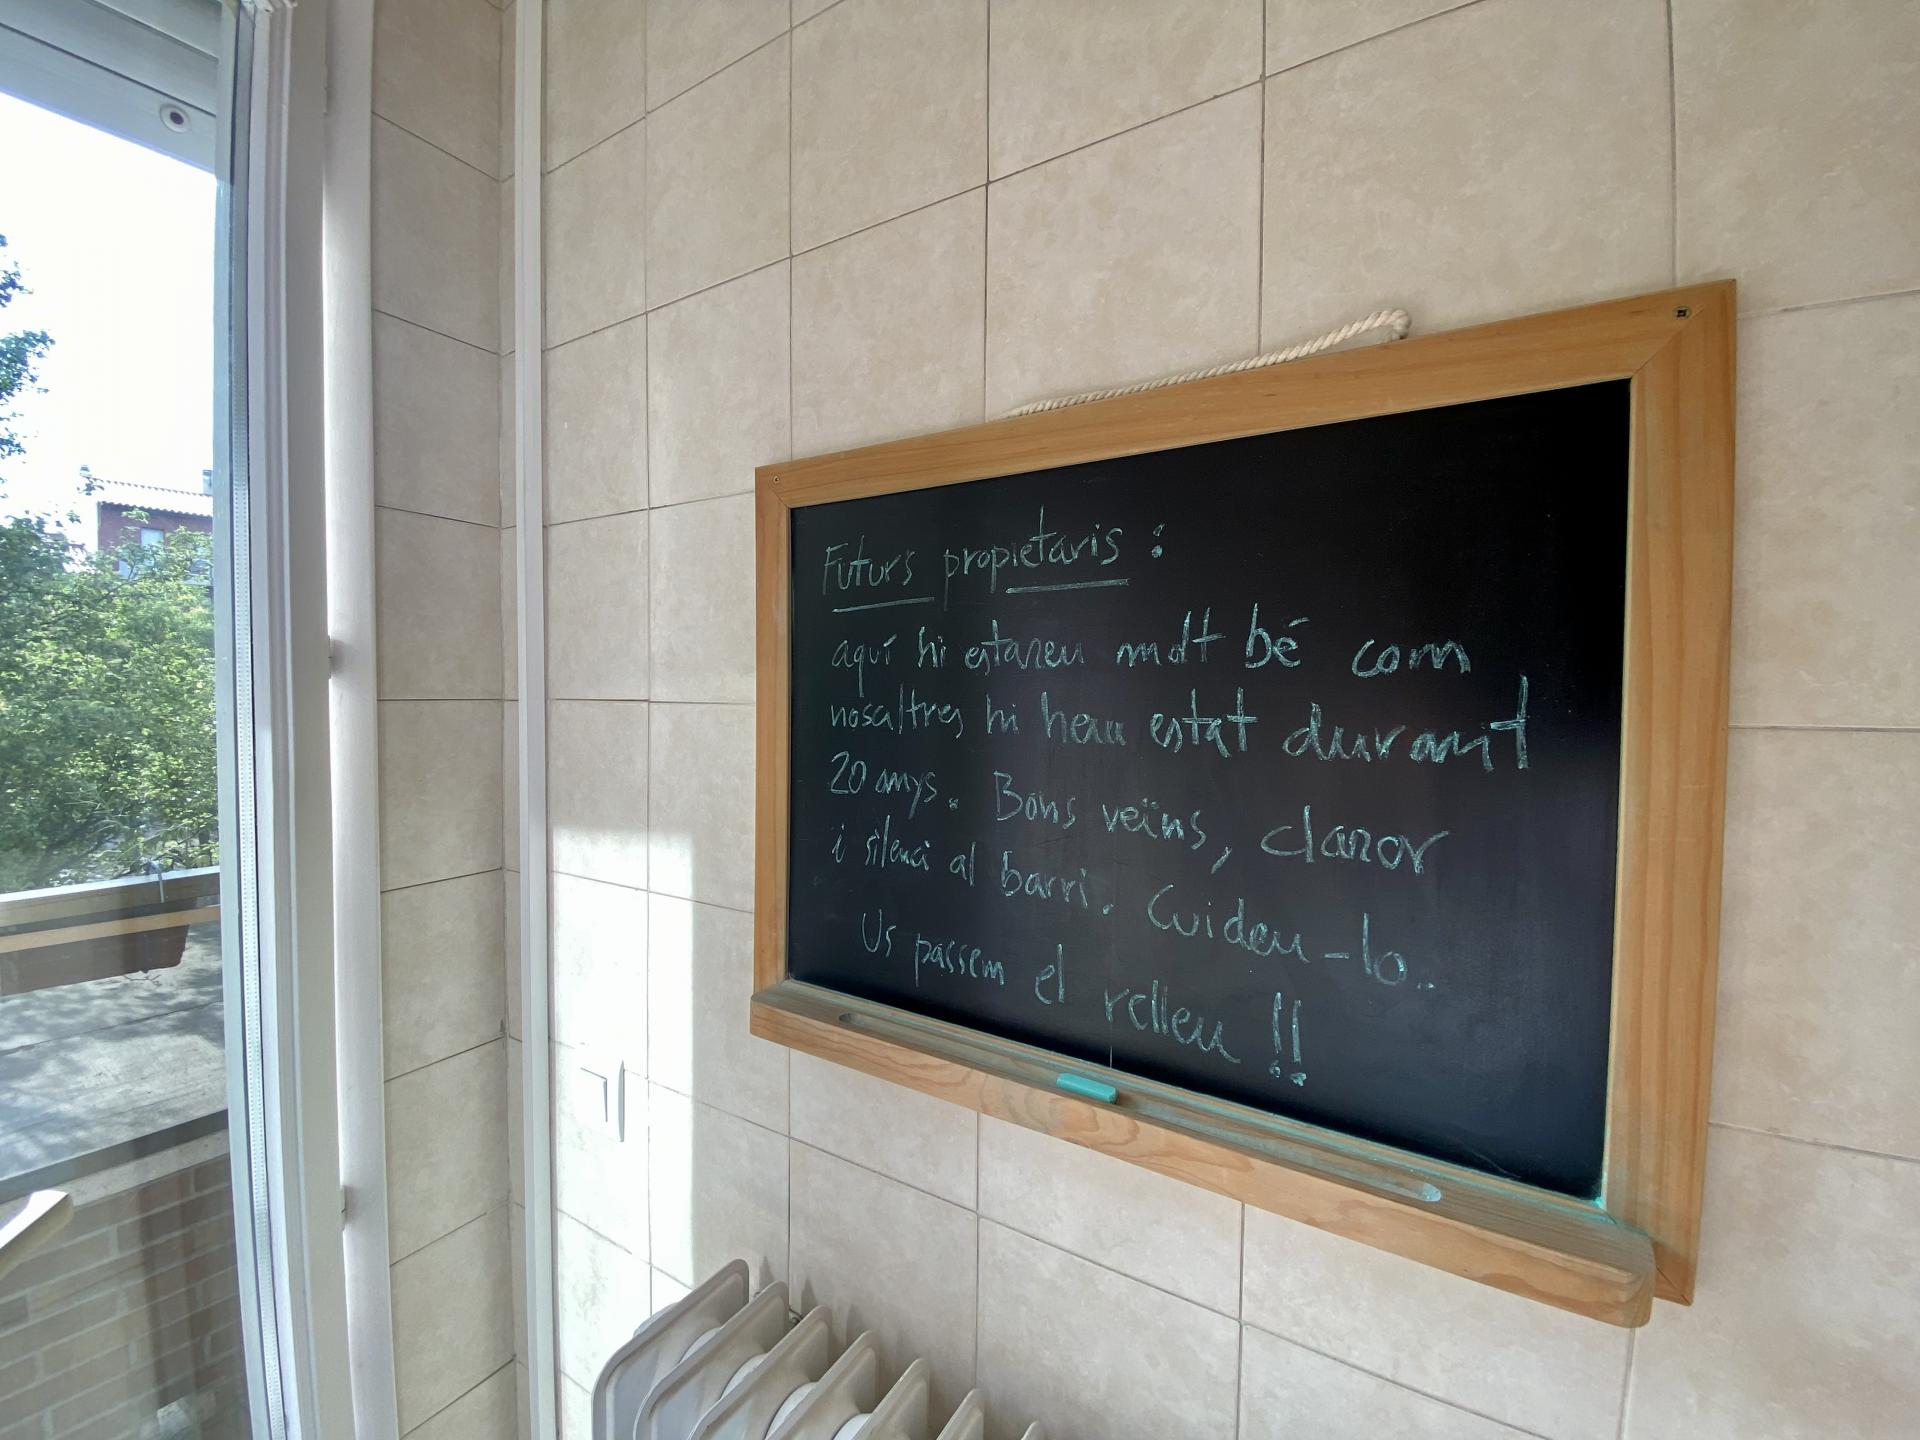 Futurs propietaris :
aquí hi estareu molt bé com
nosaltres hi hem estat durant
20 anys. Bons veïns, claror
i silenci al barri. Cuideu-lo..
Us passem el relleu !!